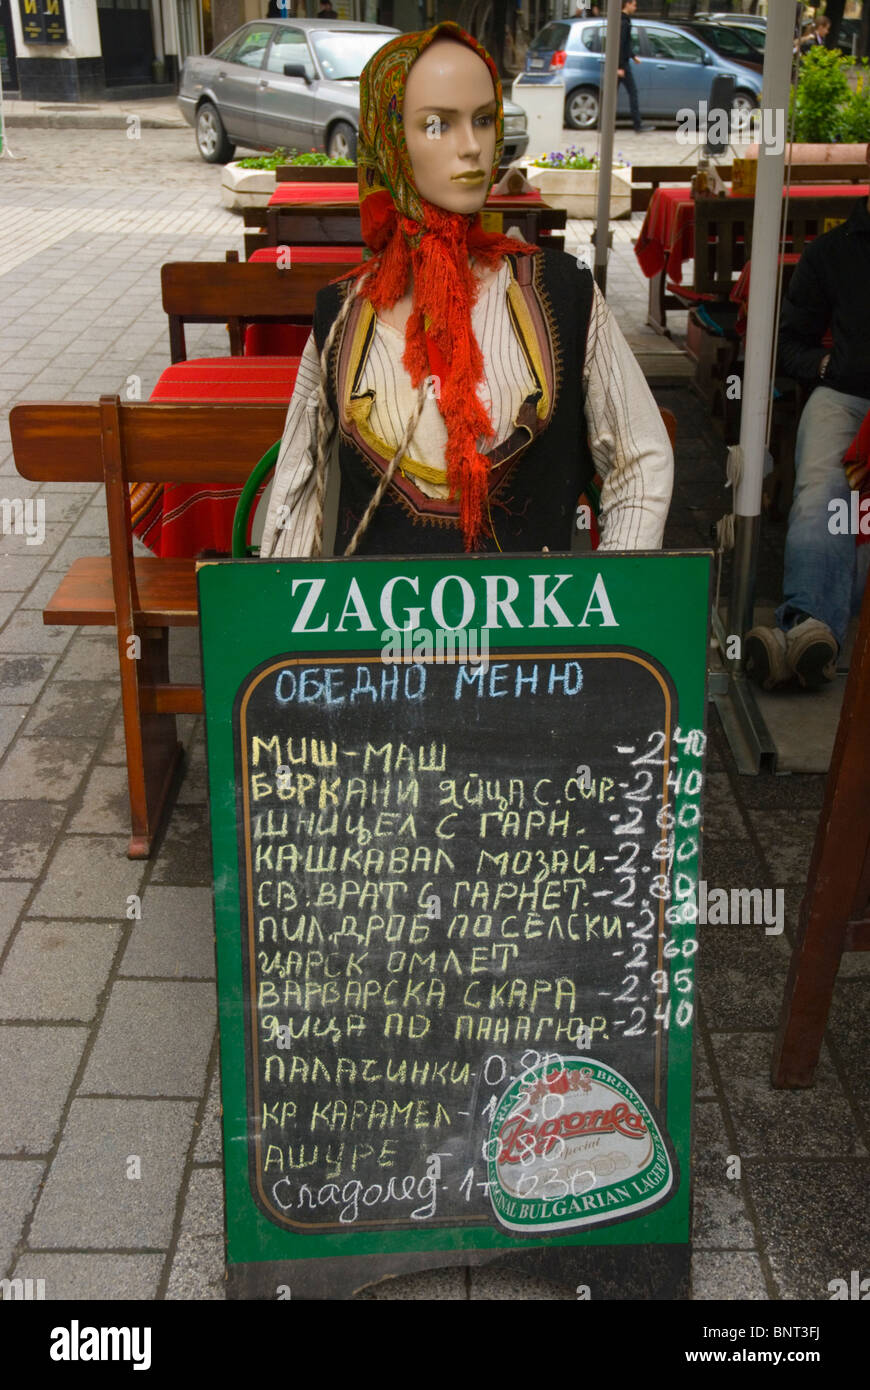 ZAGORKA
ОБЕДНО МЕНЮ
МИШ-МАШ -2.40
БЪРКАНИ ЯЙЦА С. СИР. -2.40
ШНИЦЕЛ С ГАРН. -2.60
КАШКАВАЛ МОЗАЙ. -2.80
СВ. ВРАТ С ГАРНЕТ. -2.80
ПИЛ. ДРОБ ПО СЕЛСКИ -2.60
ЦАРСК ОМЛЕТ -2.60
ВАРВАРСКА СКАРА -2.95
ЯЙЦА ПО ПАНАГЮР. -2.40
ПАЛАЧИНКИ - 0.80
КР. КАРАМЕЛ - 1.20
АШУРЕ - 0.80
Сладолед - 1т 030
Zagorka
Special
ORIGINAL BULGARIAN LAGER
alamy
Image ID: BNT3FJ
www.alamy.com